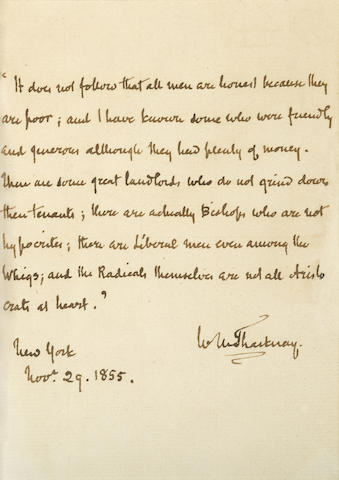 "It does not follow that all men are honest because they
are poor; and I have known some who were friendly
and generous although they had plenty of money.
There are some great landlords who do not grind down
their tenants; there are actually Bishops who are not
hypocrites; there are Liberal men even among the
Whigs; and the Radicals themselves are not all Aristo
crats at heart."
W M Thackeray.
New York
Novr 29. 1855.